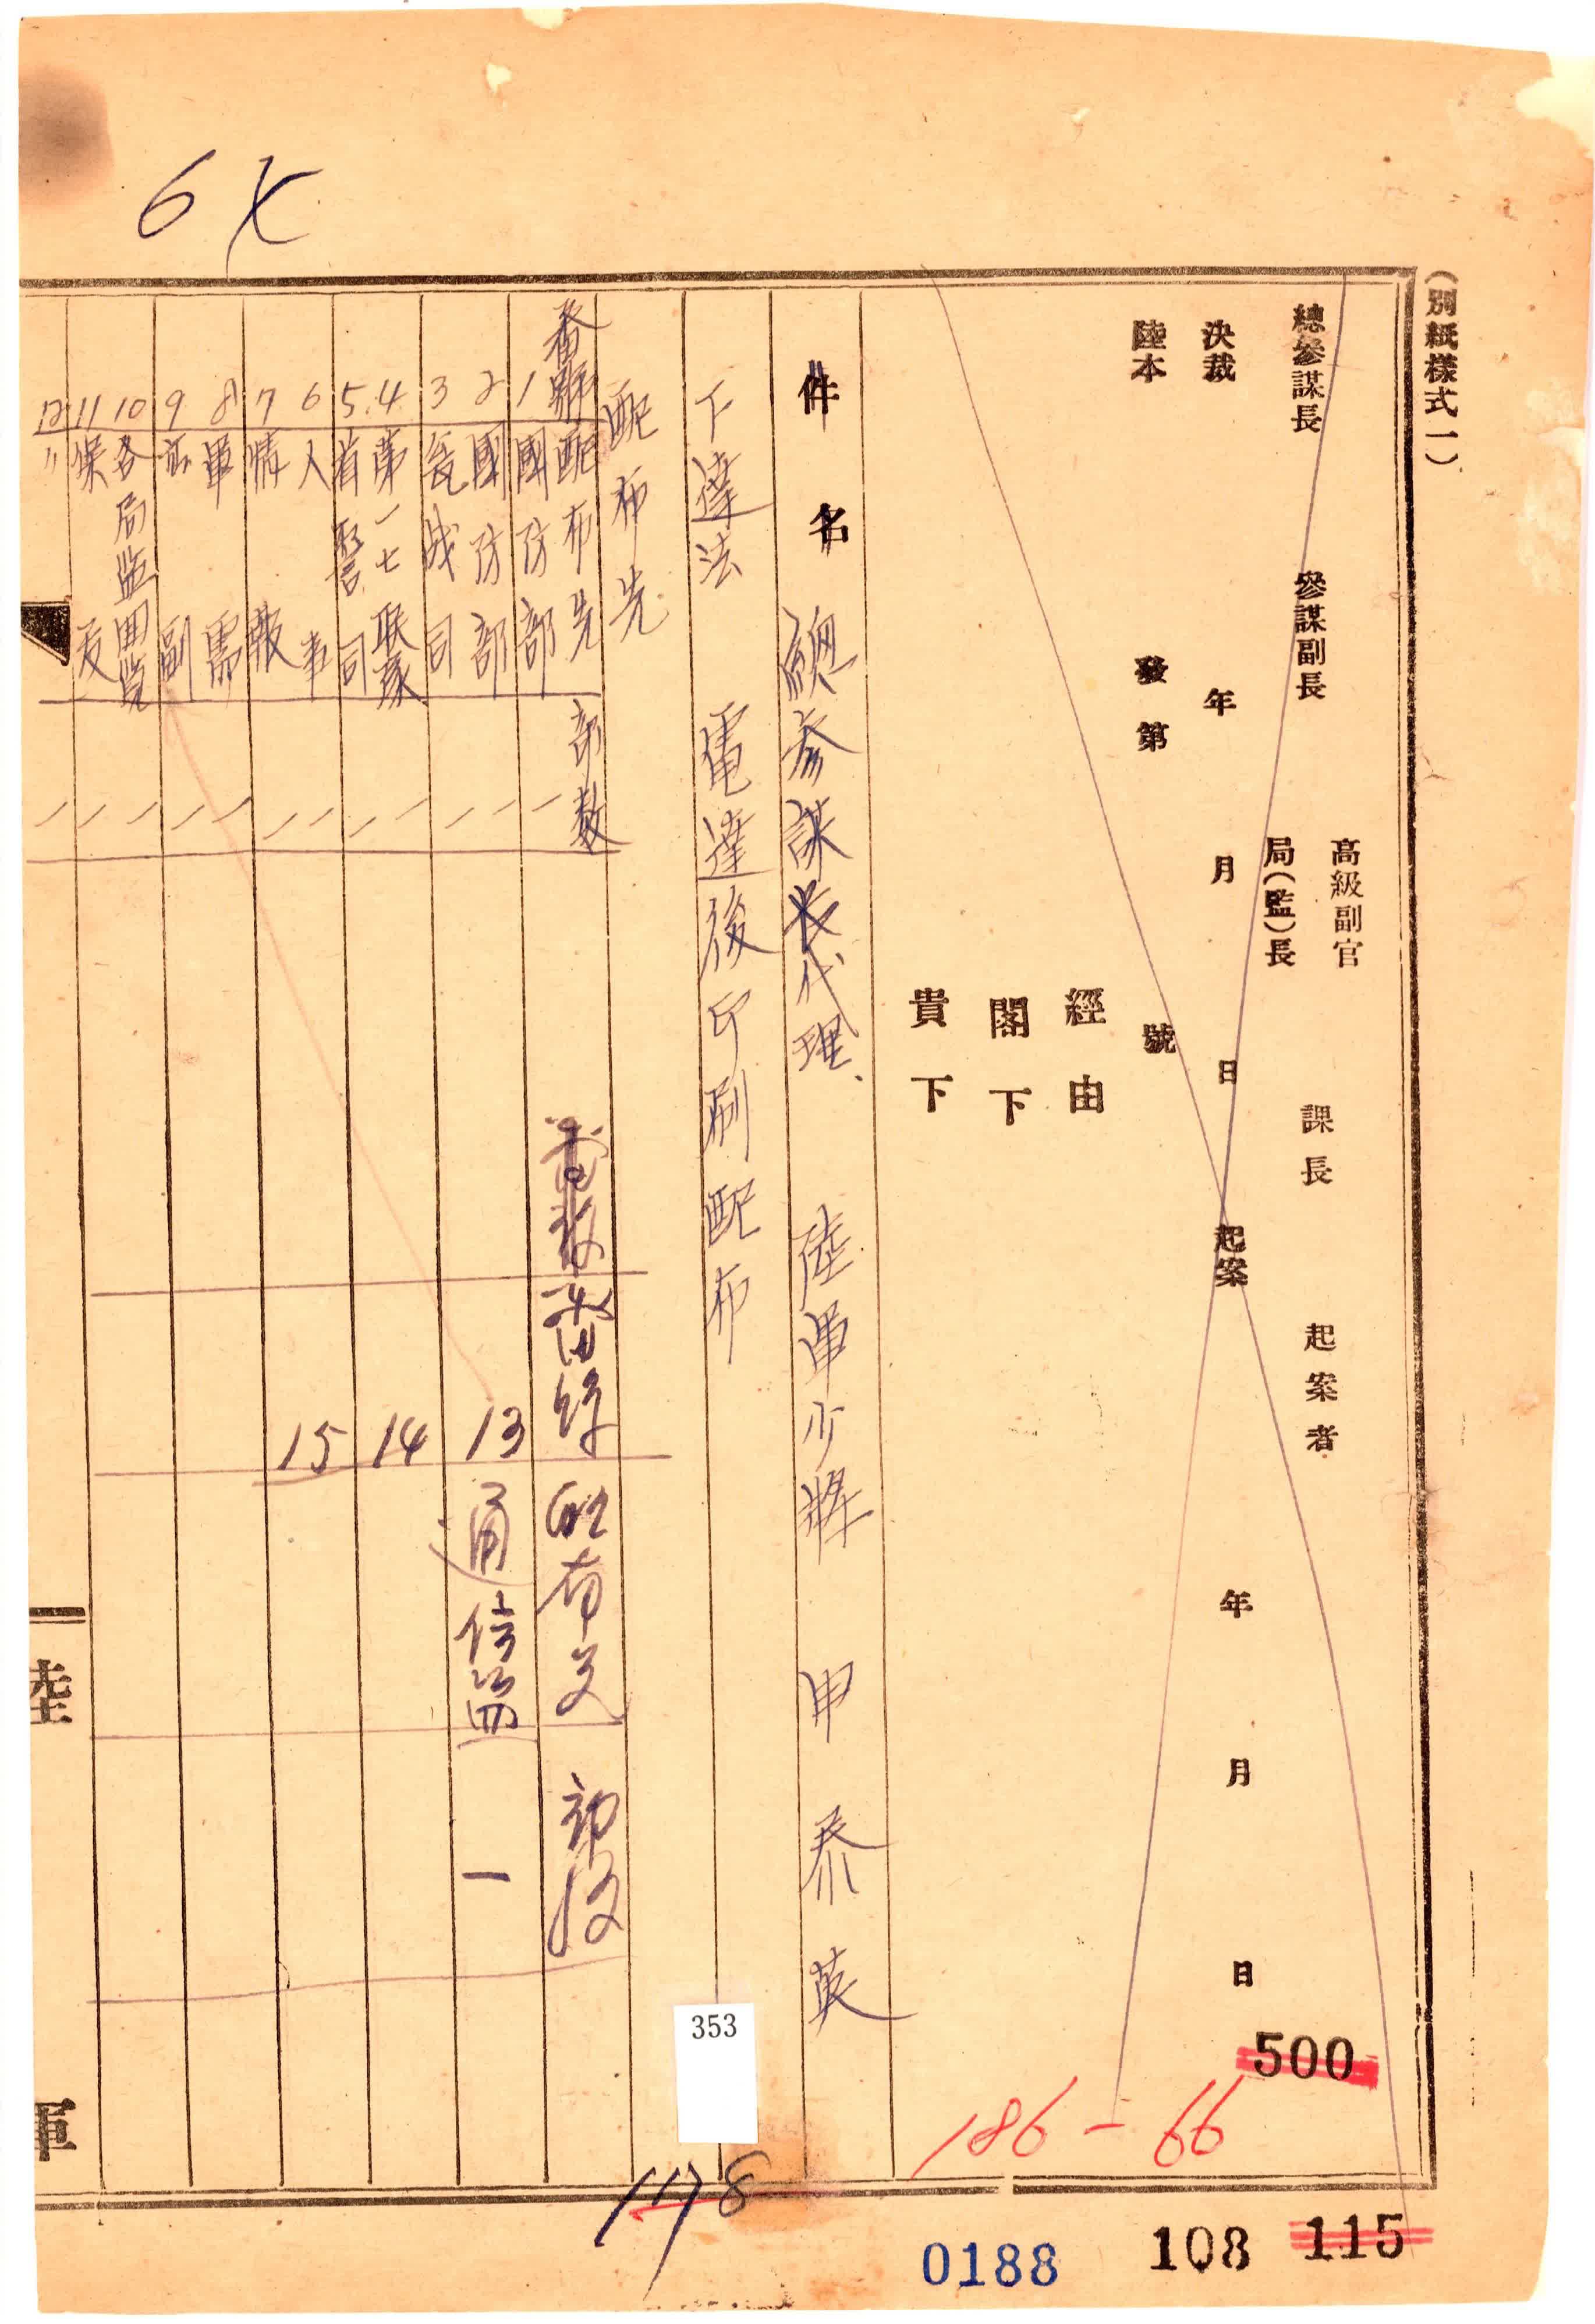 (別紙樣式一)
高級副官
總參謀長 參謀副長 局(監)長 課長 起案者
決裁 年 月 日 起案 年 月 日
陸本 發第 號
經由
閣下
貴下
件名 總參謀長代理 陸軍少將 申泰英
下達法 電達後印刷配布
配布先
番號 配布先 部數
1 國防部 一
2 國防部 一
3 一
4 第一七联隊 一
5 首警司 一
6 人事 一
7 情報 一
8 軍需 一
9 副 一
10 各局監 一
11 一
12 〃 一
13 通信監 一
14
15
陸
軍
67
500
186-66
353
1178
0188
108
115